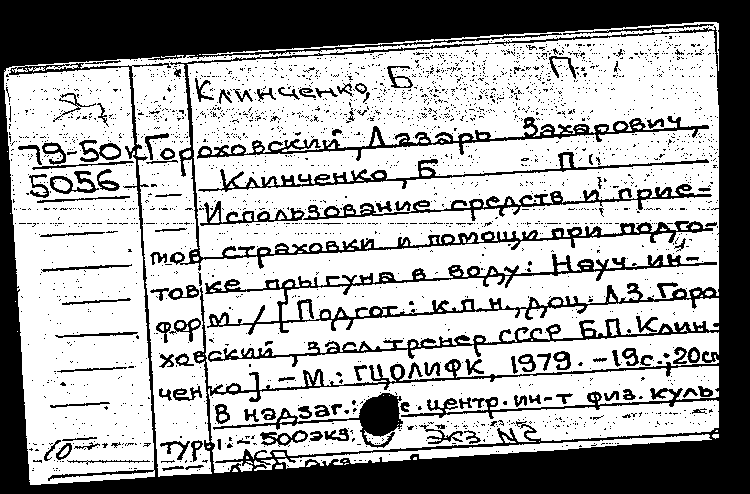 Клинченко, Б П.
79-50к Гороховский, Лазарь Захарович,
5056 Клинченко, Б П.
Использование средств и прие=
мов страховки и помощи при подго=
товке прыгуна в воду: Науч. ин-
форм. / [Подгот.: к.п.н., доц. Л.З. Горо
ховский, засл. тренер СССР Б.П. Клин=
ченко]. - М.: ГЦОЛИФК, 1979. - 19с.; 20см
В надзаг.: с. центр. ин-т физ. куль
туры. - 500экз. Экз N2
10